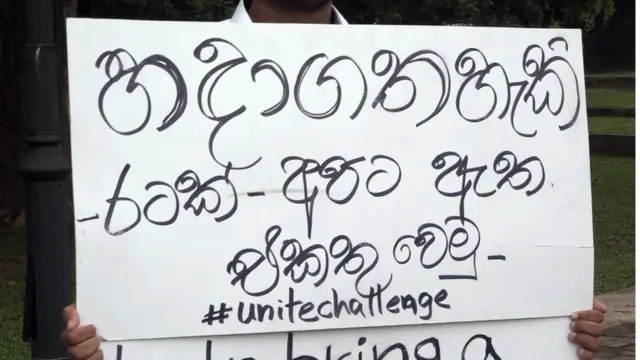 හදාගතහැකි
-රටක්- අපට ඇත.
එකතු වෙමු-
#unitechallenge
bring a